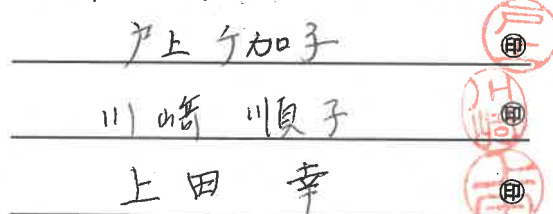 戸上 ケ加子 ㊞
川﨑 順子 ㊞
上田 幸 ㊞